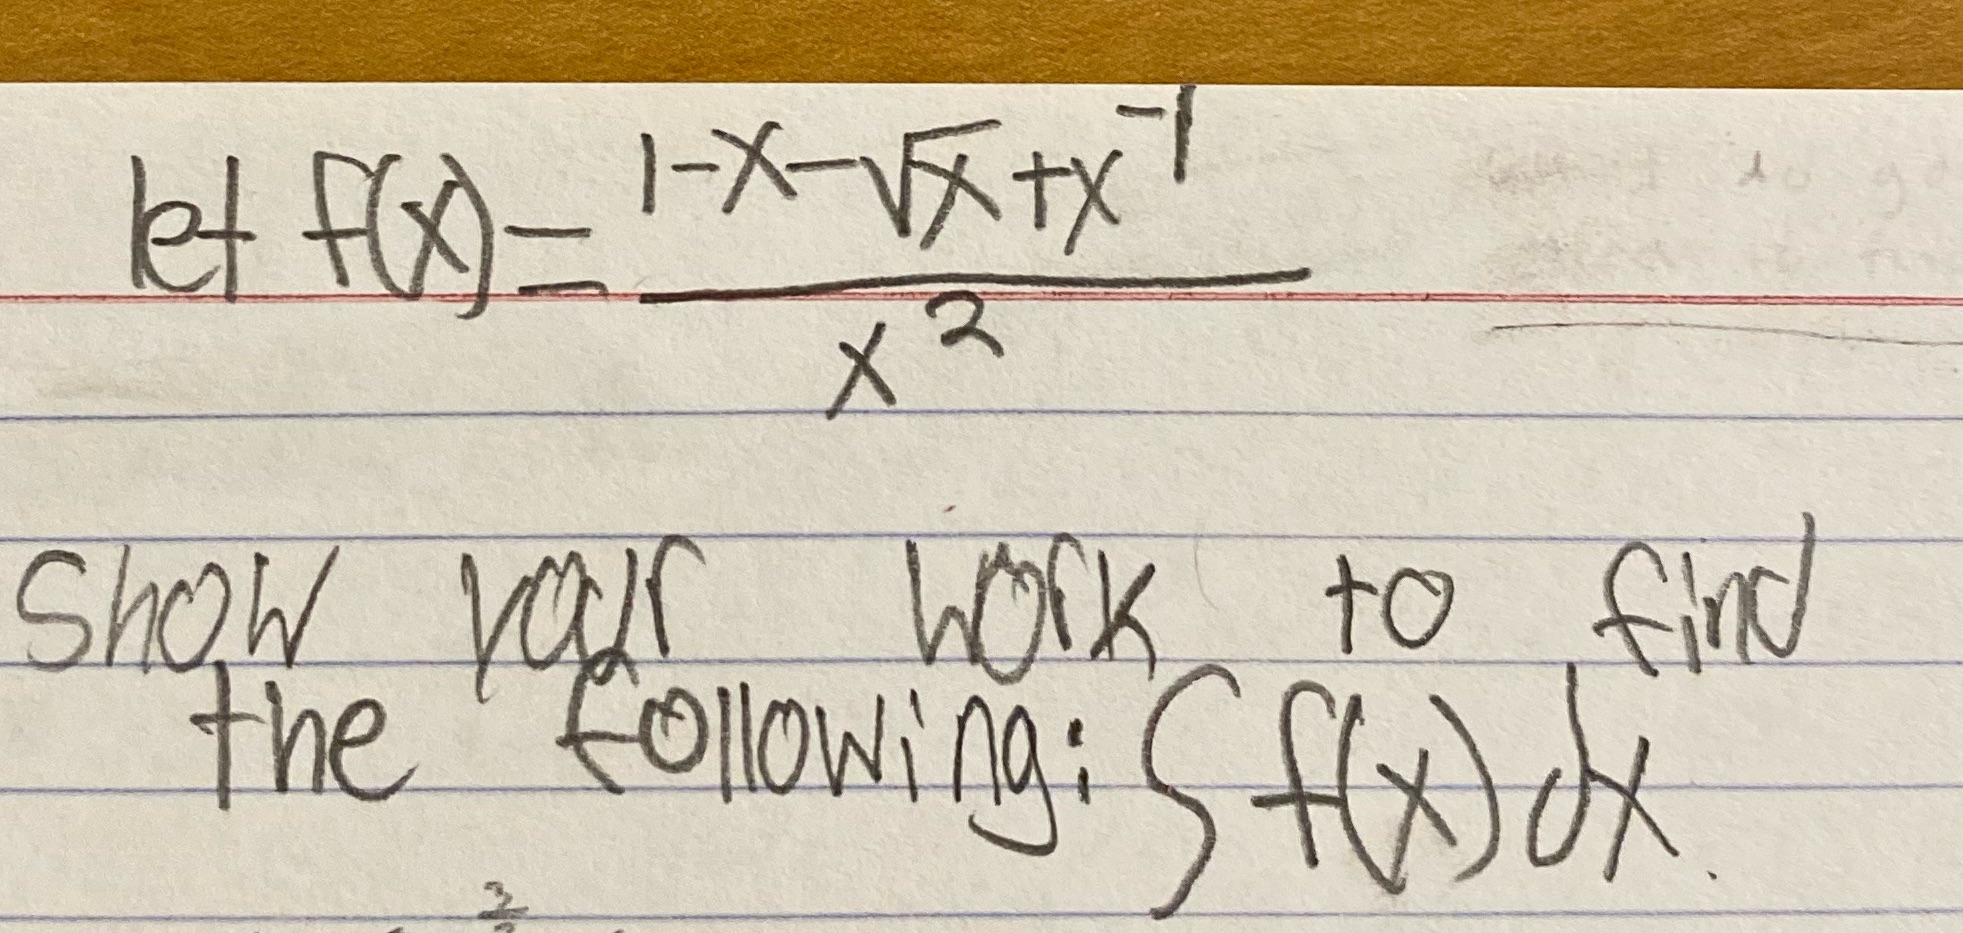 let f(x) = (1-x-√x+x^-1)/x^2
Show your work to find
the following: ∫ f(x) dx.